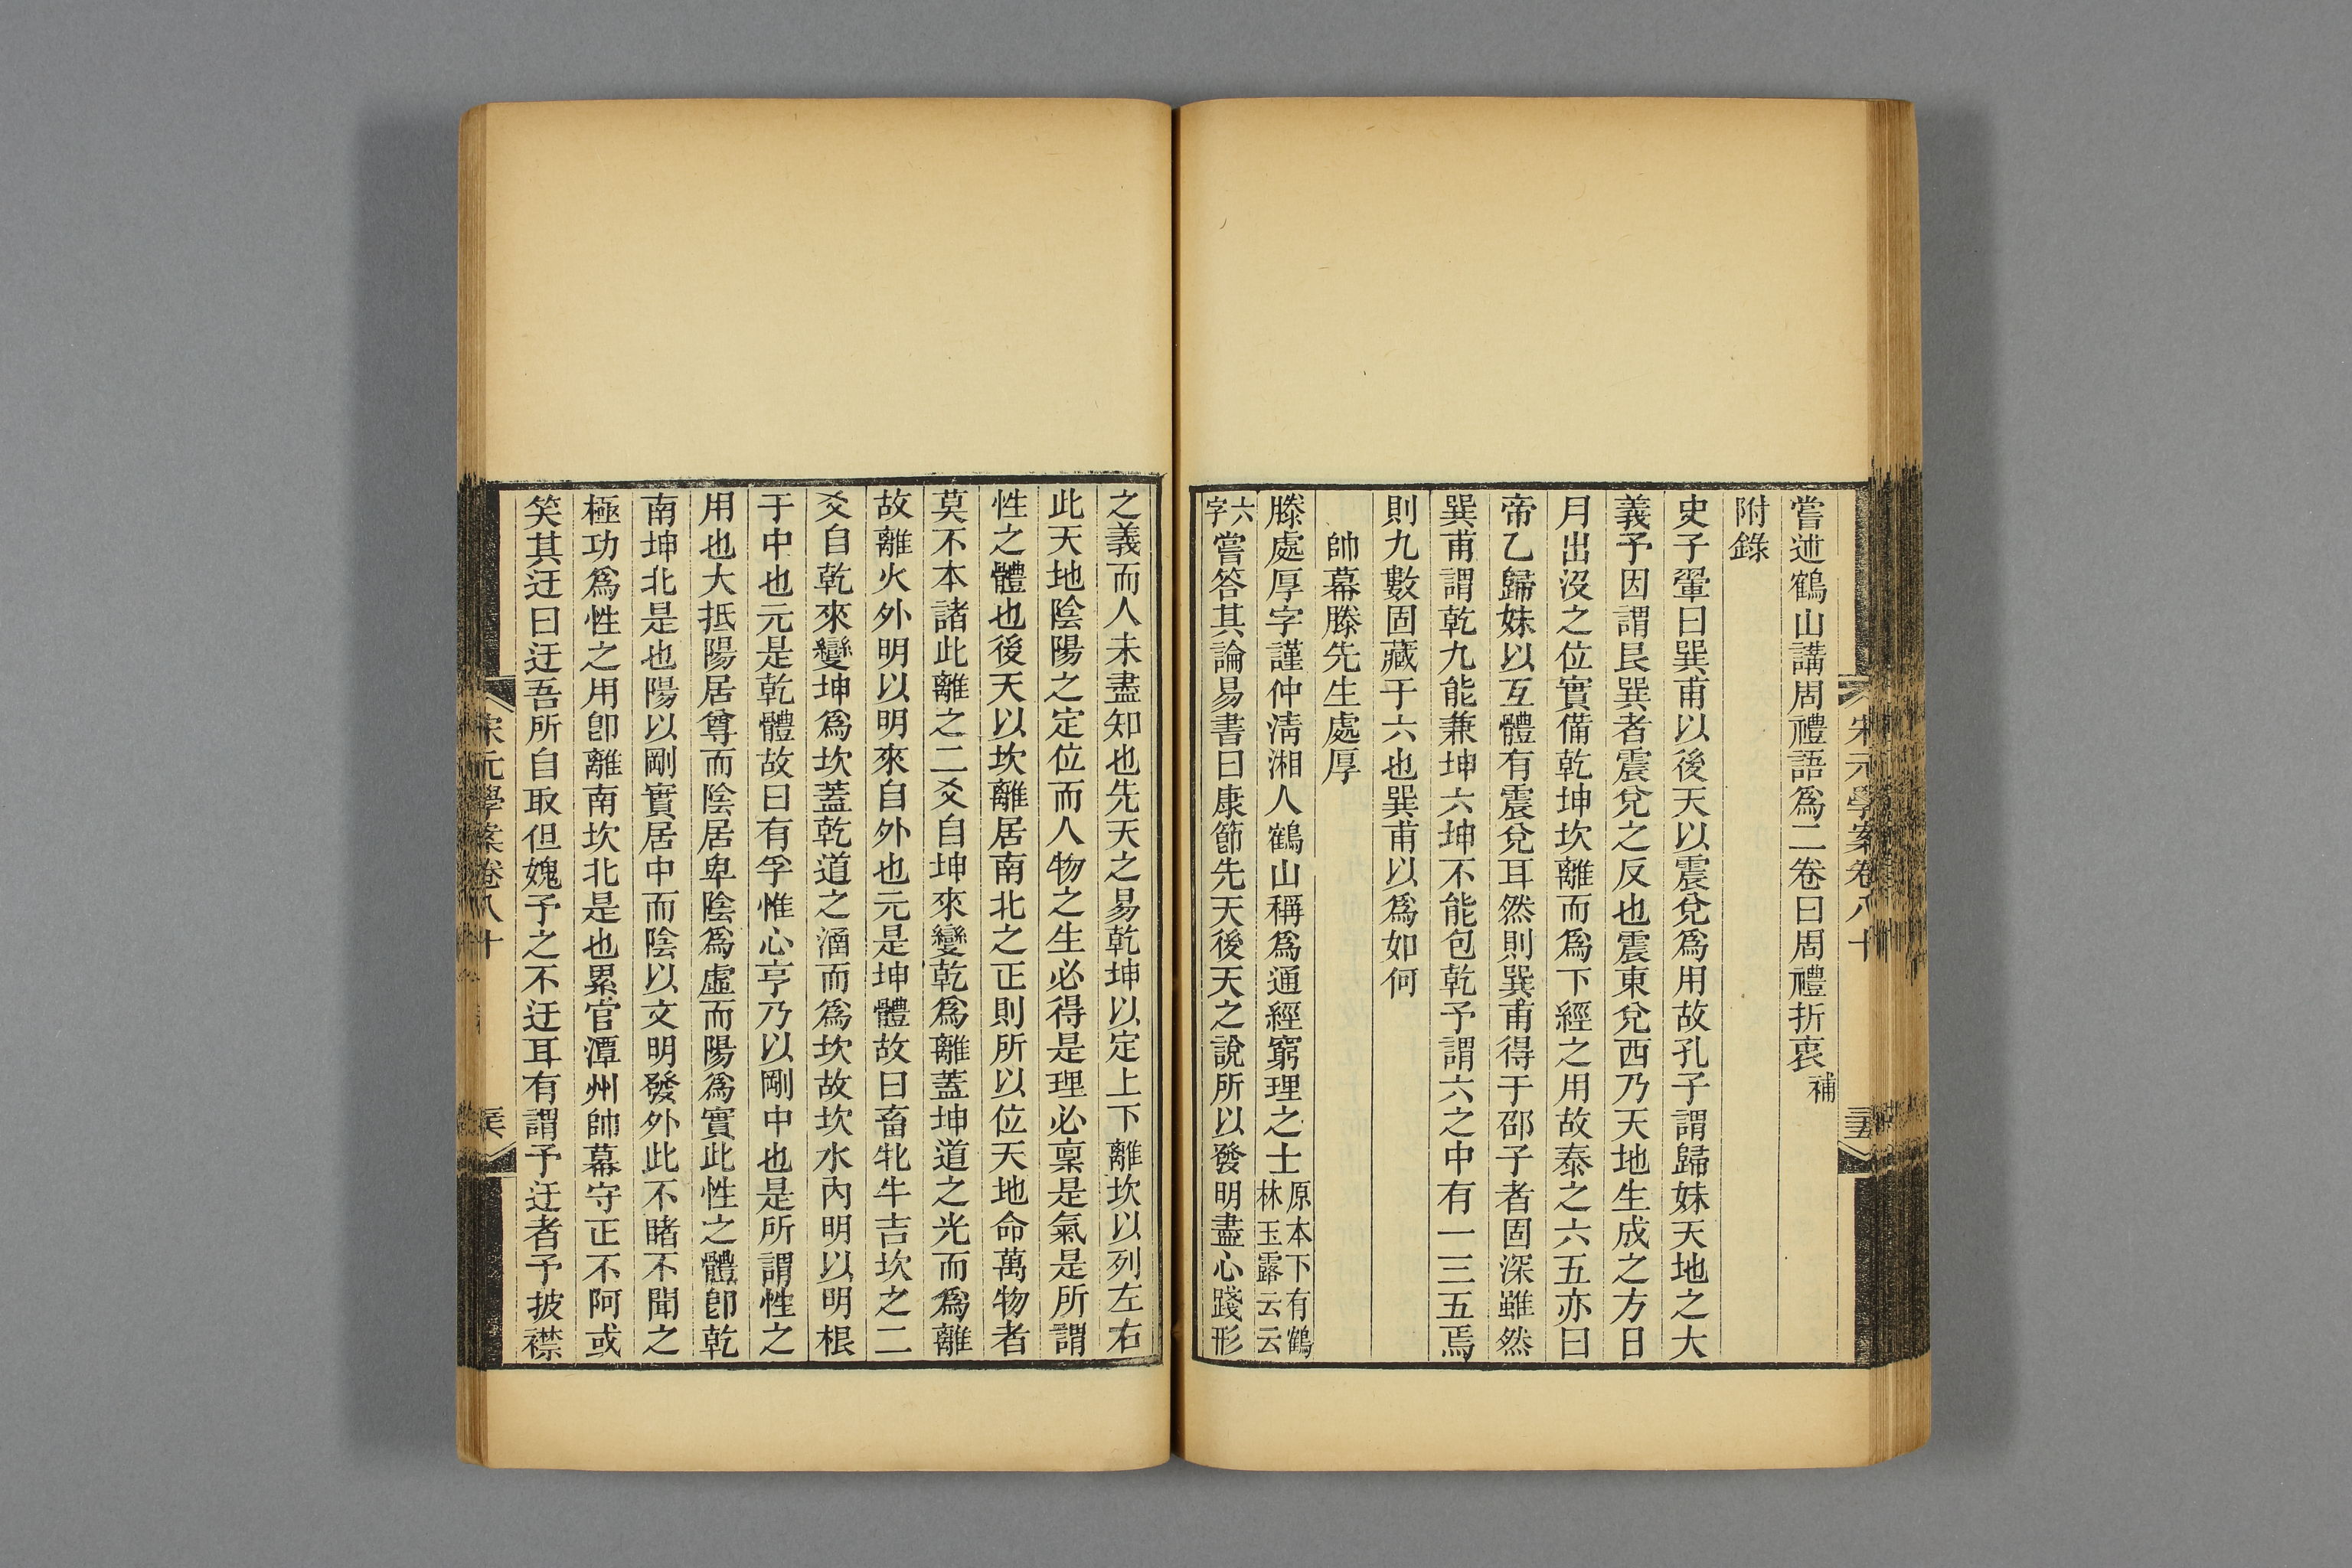 宋元學案卷八十
嘗述鶴山講周禮語爲二卷曰周禮折衷補
附錄
史子翬曰巽甫以後天以震兌爲用故孔子謂歸妹天地之大
義予因謂艮巽者震兌之反也震東兌西乃天地生成之方日
月出沒之位實備乾坤坎離而爲下經之用故泰之六五亦曰
帝乙歸妹以互體有震兌耳然則巽甫得于邵子者固深雖然
巽甫謂乾九能兼坤六坤不能包乾予謂六之中有一三五焉
則九數固藏于六也巽甫以爲如何
帥幕滕先生處厚
滕處厚字謹仲淸湘人鶴山稱爲通經窮理之士原本下有鶴林玉露云云
六字嘗答其論易書曰康節先天後天之說所以發明盡心踐形
之義而人未盡知也先天之易乾坤以定上下離坎以列左右
此天地陰陽之定位而人物之生必得是理必稟是氣是所謂
性之體也後天以坎離居南北之正則所以位天地命萬物者
莫不本諸此離之二爻自坤來變乾爲離蓋坤道之光而爲離
故離火外明以明來自外也元是坤體故曰畜牝牛吉坎之二
爻自乾來變坤爲坎蓋乾道之涵而爲坎故坎水內明以明根
于中也元是乾體故曰有孚惟心亨乃以剛中也是所謂性之
用也大抵陽居尊而陰居卑陰爲虛而陽爲實此性之體卽乾
南坤北是也陽以剛實居中而陰以文明發外此不睹不聞之
極功爲性之用卽離南坎北是也累官潭州帥幕守正不阿或
笑其迂曰迂吾所自取但媿予之不迂耳有謂予迂者予披襟
宋元學案卷八十